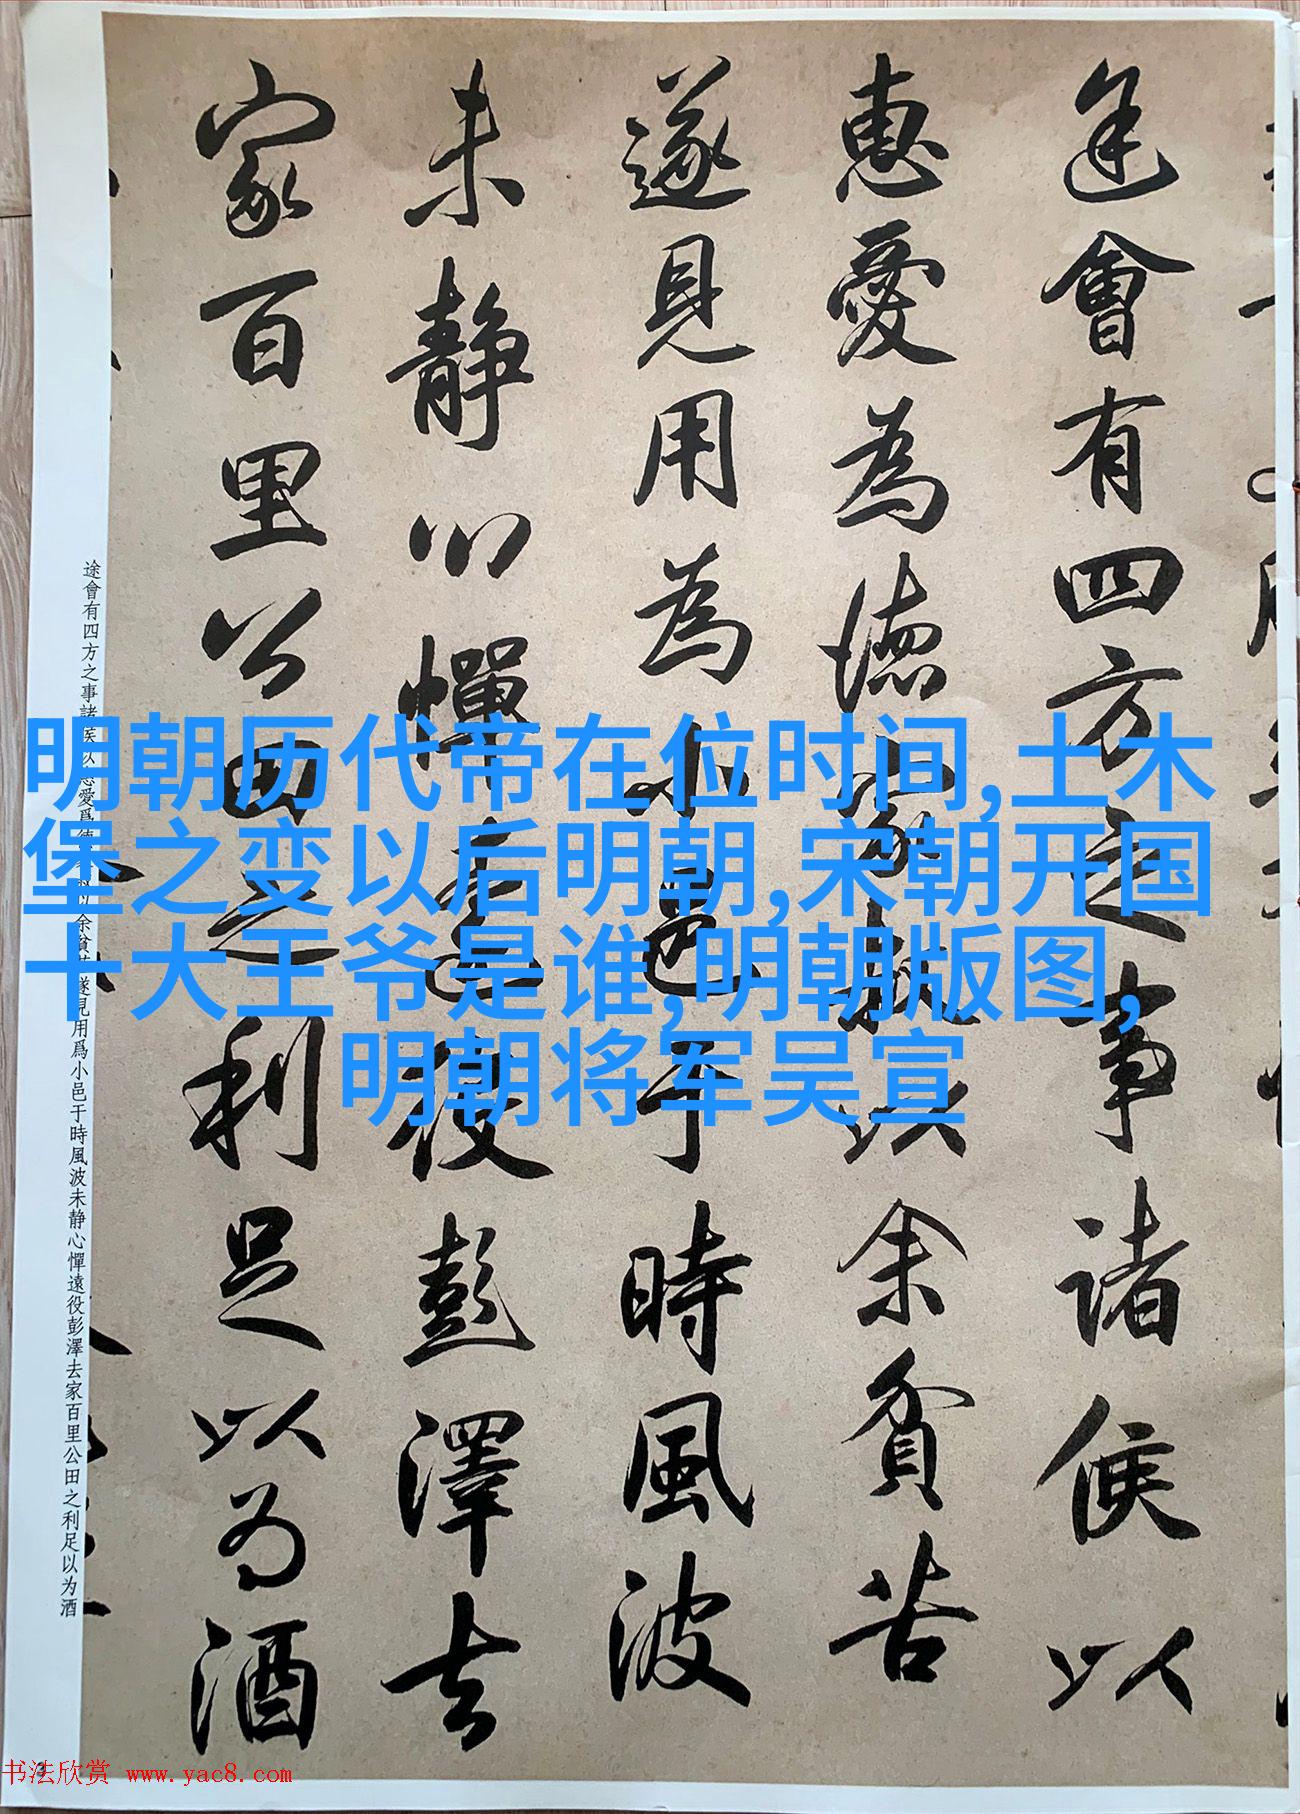 途會有四方之事諸侯以
惠愛為德家叔以余貧苦
遂見用為小邑于時風波
未靜心憚遠役彭澤去
家百里公田之利足以為酒
途會有四方之事諸侯以惠愛爲德家叔以余貧苦遂見用爲小邑于時風波未静心憚遠役彭澤去家百里公田之利足以为酒
明朝历代帝在位时间,土木
堡之变以后明朝,宋朝开国
十大王爷是谁,明朝版图,
明朝将军吴宣
书法欣赏 www.yac8.com